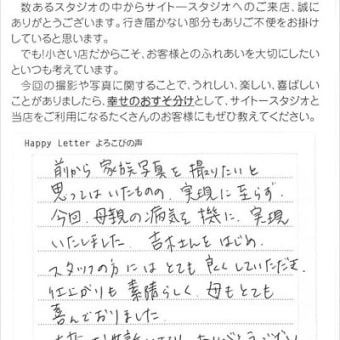 数あるスタジオの中からサイトースタジオへのご来店、誠に
ありがとうございます。行き届かない部分もありご不便をお掛け
していると思います。
でも!小さい店だからこそ、お客様とのふれあいを大切にしたい
といつも考えています。
今回の撮影や写真に関することで、うれしい、楽しい、喜ばしい
ことがありましたら、幸せのおすそ分けとして、サイトースタジオと
当店をご利用になるたくさんのお客様にもぜひ教えてください。
Happy Letter よろこびの声
前から家族写真を撮りたいと
思ってはいたものの、実現に至らず、
今回、母親の病気を機に、実現
いたしました。吉木さんをはじめ、
スタッフの方にはとても良くしていただき、
仕上がりも素晴らしく、母もとても
喜んでおりました。